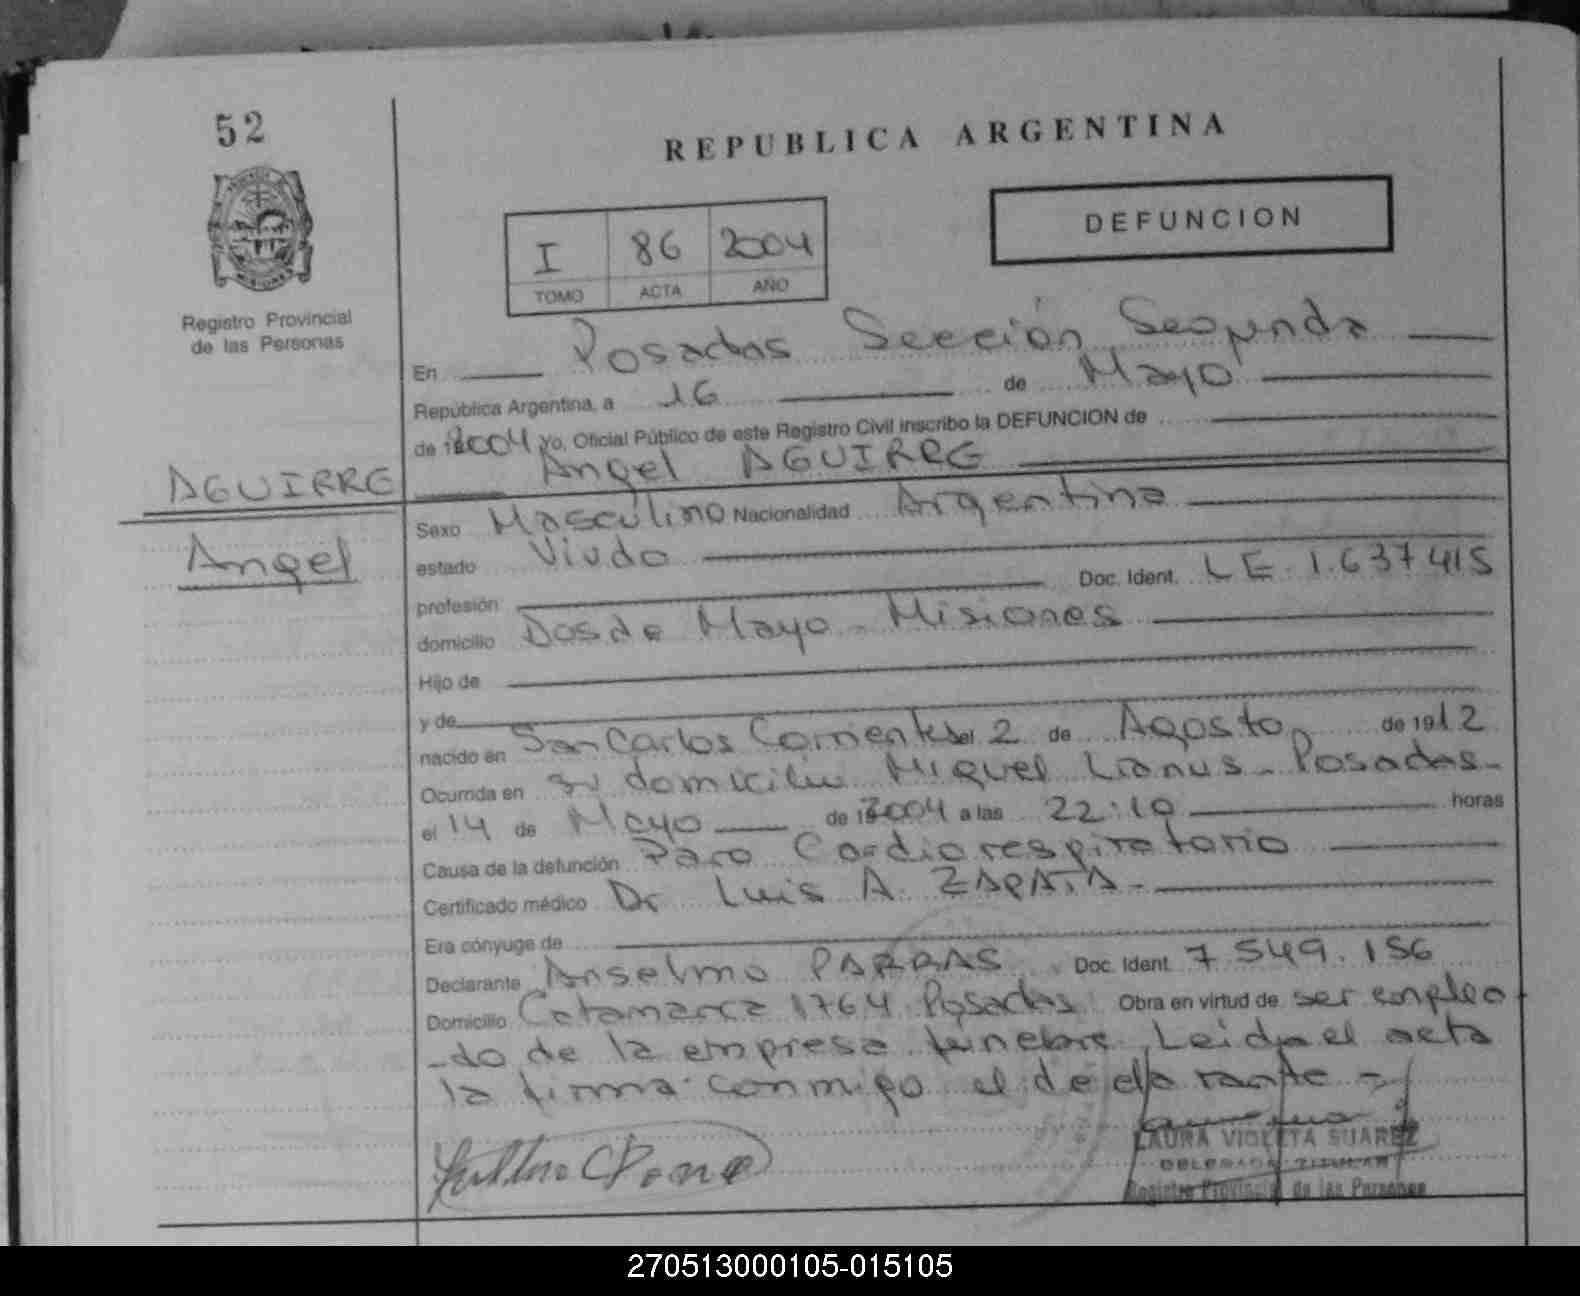 52
REPUBLICA ARGENTINA
DEFUNCION
I 86 2004
TOMO ACTA AÑO
Registro Provincial
de las Personas
En Posadas Sección Segunda
República Argentina, a 16 de Mayo
de 2004 Yo, Oficial Público de este Registro Civil inscribo la DEFUNCION de
Angel AGUIRRE
AGUIRRE
Angel
Sexo Masculino Nacionalidad Argentina
estado Viudo
Doc. Ident. LE 1.637415
profesión
domicilio Dos de Mayo - Misiones
Hijo de
y de
nacido en San Carlos Corrientes el 2 de Agosto de 1912
Ocurrida en su domicilio Miguel Lanus - Posadas -
el 14 de Mayo de 2004 a las 22:10 horas
Causa de la defunción Paro Cardiorespiratorio
Certificado médico Dr Luis A. ZAPATA -
Era cónyuge de
Declarante Anselmo PARRAS Doc. Ident. 7.549.156
Domicilio Catamarca 1764 Posadas Obra en virtud de ser emplea
-do de la empresa funebre Leida el acta
la firma conmigo el declarante -
LAURA VIOLETA SUAREZ
DELEGADA TITULAR
Registro Provincial de las Personas
270513000105-015105